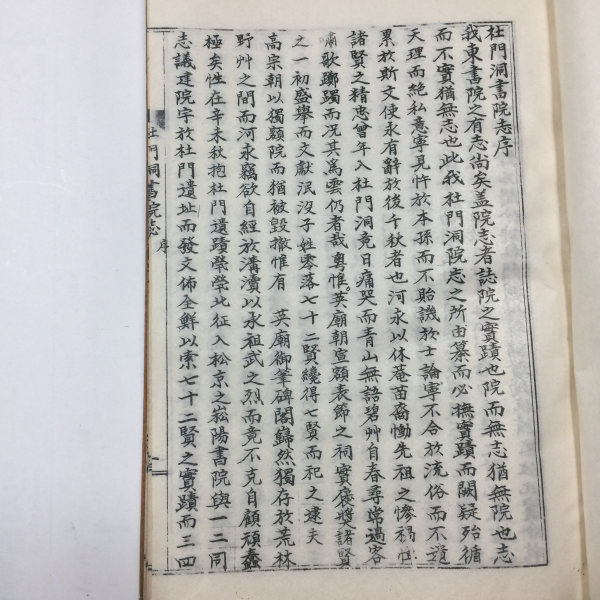 杜門洞書院志序
我東書院之有志尚矣盖院志者誌院之實蹟也院而無志猶無院也志
而不實猶無志也此我杜門洞院志之所由纂而必撫實蹟而闕疑殆循
天理而絶私意寧見忤於本孫而不貽譏於士論寧不合於流俗而不遺
累於斯文使永有辭於後千秋者也河永以休菴苗裔慟先祖之慘禍
諸賢之精忠曾年入杜門洞竟日痛哭而青山無語碧艸自春尋常過客
嘯歌躑躅而况其爲雲仍者哉粤惟英廟朝宣額表節之祠實褒奬諸賢
之一初盛擧而文獻泯没子姓零落七十二賢纔得七賢而祀之逮夫
高宗朝以獨額院而猶被毀撤惟有 英廟御筆碑閣巋然獨存於荒林
野艸之間而河永竊欲自經於溝瀆以永祖武之烈而竟不克自顧頑蠢
極矣性在辛未秋抱杜門遺蹟煢煢北征入松京之崧陽書院與一二同
志議建院宇於杜門遺址而發文佈全鮮以索七十二賢之實蹟而三四
杜門洞書院志 序